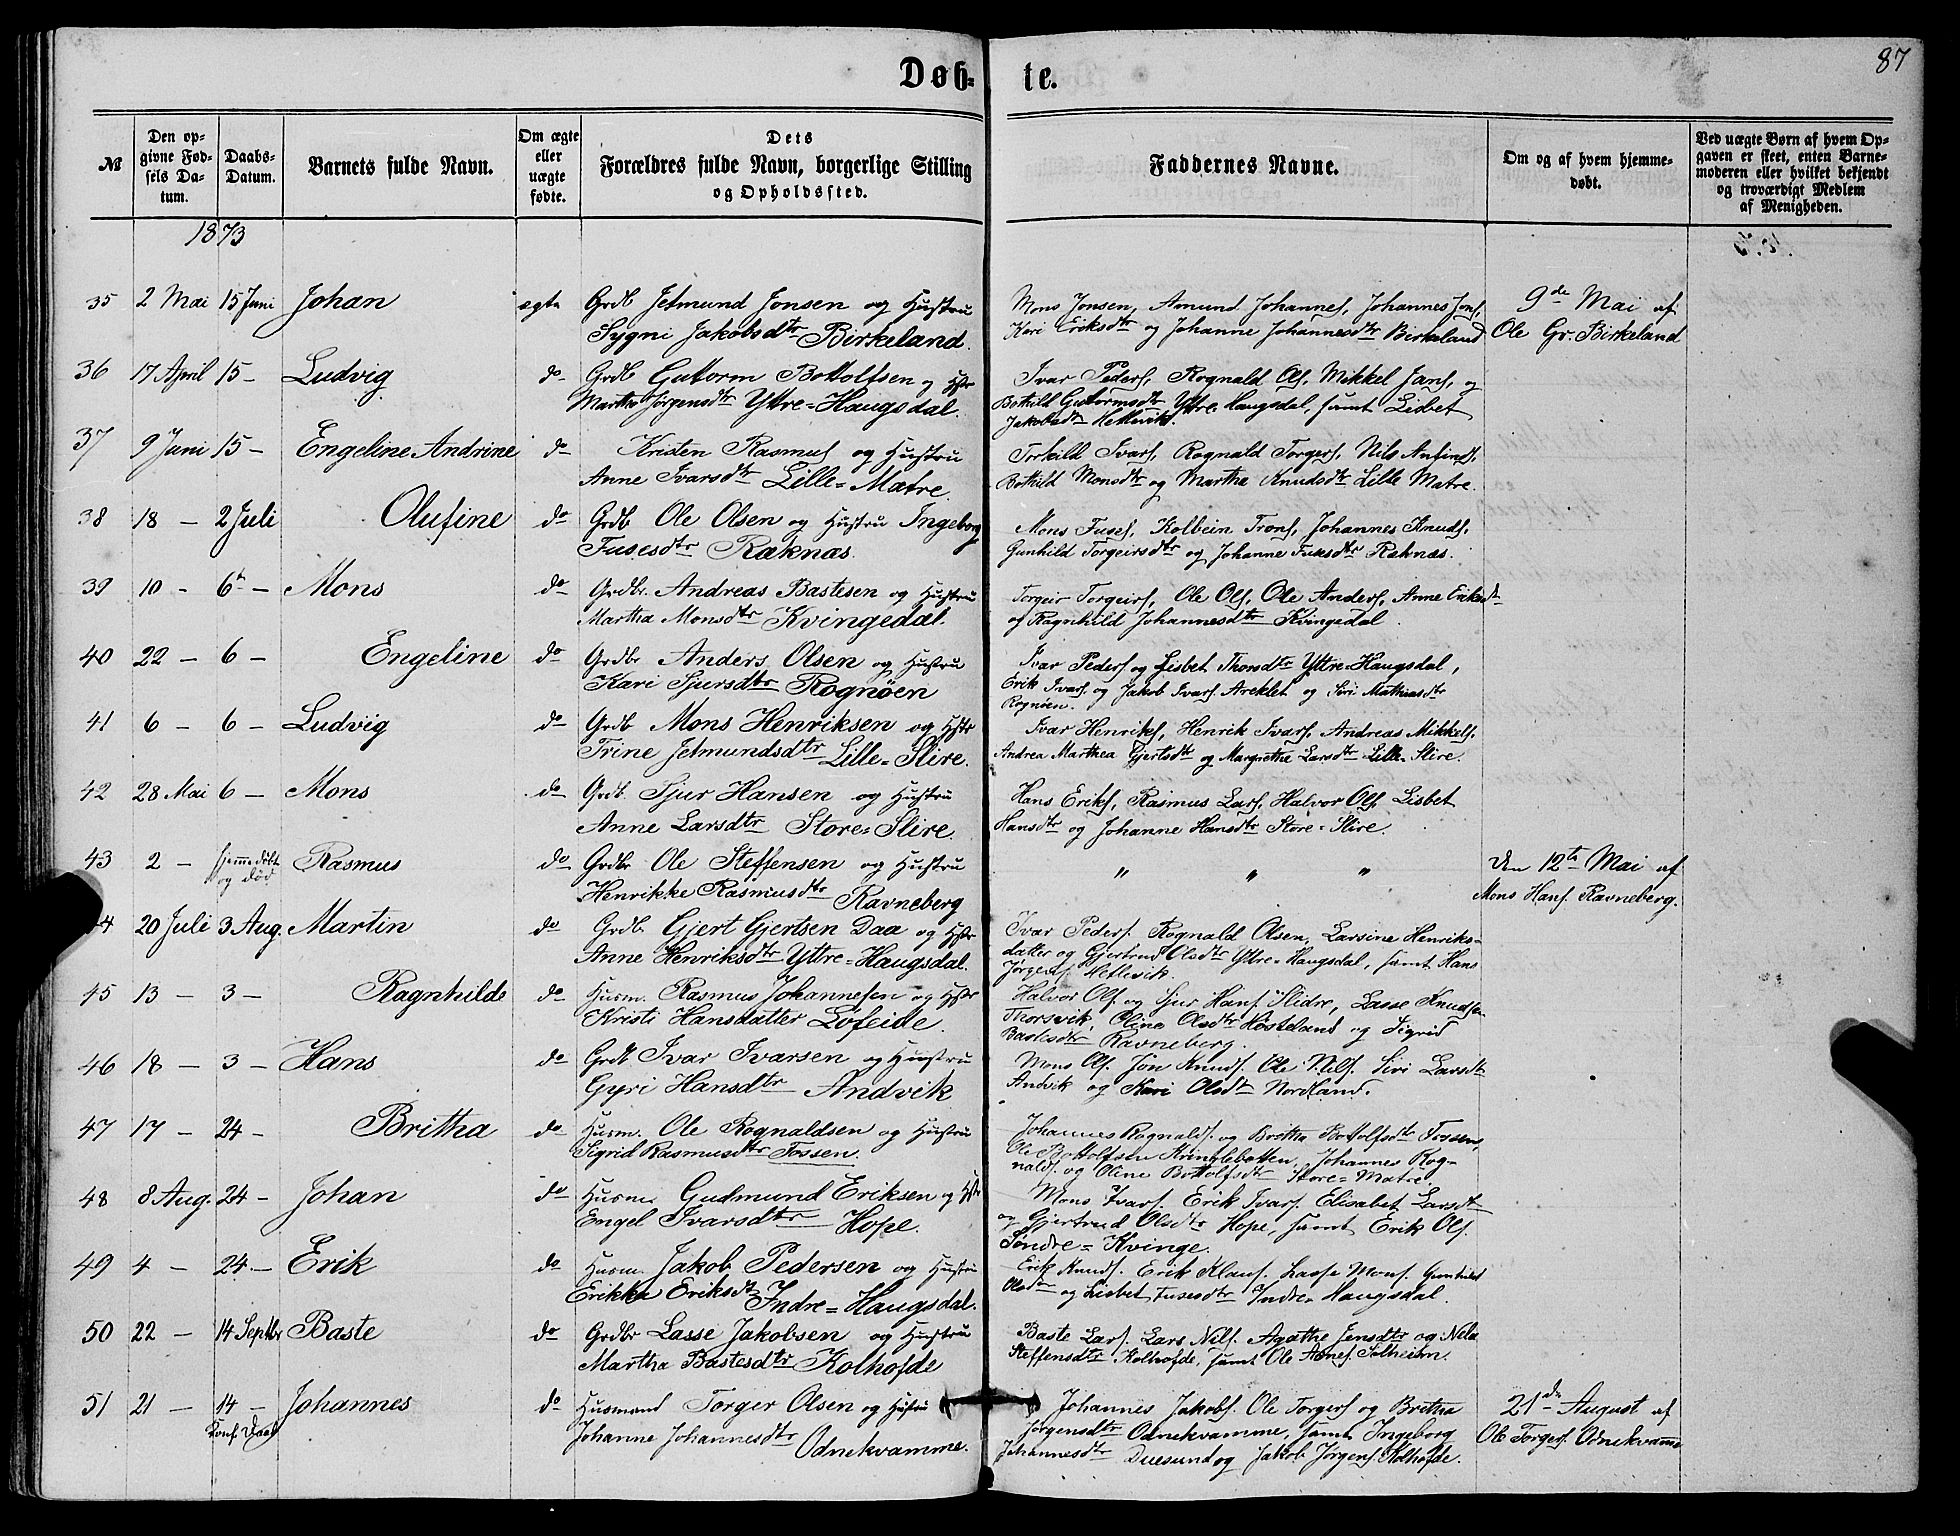 87
Døbte.
№
Den opgivne Fødsels Datum.
Daabs-Datum.
Barnets fulde Navn.
Om ægte eller uægte fødte.
Dets Forældres fulde Navn, borgerlige Stilling og Opholdssted.
Faddernes Navne.
Om og af hvem hjemmedøbt.
Ved uægte Børn af hvem Opgaven er skeet, enten Barnemoderen eller hvilket bekjendt og troværdigt Medlem af Menigheden.
1873
35 2 Mai 15 Juni Johan ægte Grdb Jetmund Jonsen og Hustru
Sygni Jakobsdtr Birkeland.
Mons Jonsen, Amund Johannes, Johannes Jons,
Kari Eriksdtr og Johanne Johannesdtr Birkeland
9de Mai af
Ole Gr. Birkeland
36 17 April 15 — Ludvig do Grdb Guttorm Bottolfsen og Hstr
Martha Jørgensdtr Yttre=Haugsdal.
Ivar Peders, Rognald Ols, Mikkel Jans, og
Bothild Guttormsdtr Yttre Haugsdal, samt Lisbet
Jakobsdtr Hetlevik.
37 9 Juni 15 — Engeline Andrine do Kristen Rasmus og Hustru
Anne Ivarsdtr Lille=Matre.
Torkild Ivars, Rognald Torgers, Nils Anfinds,
Bothild Monsdtr og Martha Knudsdtr Lille Matre.
38 18 — 2 Juli Olufine do Grdb Ole Olsen og Hustru Ingeborg
Fusesdtr Raknas.
Mons Fuses, Kolbein Trons, Johannes Knuds,
Gunhild Torgeirsdtr og Johanne Fusesdtr Raknas.
39 10 — 6te — Mons do Grdbr. Andreas Bastesen og Hustru
Martha Monsdtr Kvingedal.
Torgeir Torgeirs, Ole Ols, Ole Anders, Anne Eriksdtr
og Ragnhild Johannesdtr Kvingedal.
40 22 — 6 — Engeline do Grdbr Anders Olsen og Hustru
Kari Sjursdtr Rognøen
Ivar Peders og Lisbet Thorsdtr Yttre=Haugsdal,
Erik Ivars. og Jakob Ivars Areklet og Siri Mathiasdtr
Rognøen.
41 6 — 6 — Ludvig do Grdb Mons Henriksen og Hstr
Trine Jetmundsdtr Lille=Slire.
Ivar Henriks, Henrik Ivars, Andreas Mikkels,
Andrea Marthea Gjertsdtr og Margrethe Larsdtr Lille=Slire.
42 28 Mai 6 — Mons do Grdb. Sjur Hansen og Hustru
Anne Larsdtr Store=Slire
Hans Eriks, Rasmus Lars, Halvor Ols, Lisbet
Hansdtr og Johanne Hansdtr Store=Slire.
43 2 — hjemmedøbt og død Rasmus do Grdbr Ole Steffensen og Hustru
Henrikke Rasmusdtr Ravneberg
" " "
Den 12te Mai af
Mons Hans. Ravneberg.
44 20 Juli 3 Aug. Martin do Grdb. Gjert Gjertsen Daa og Hstr
Anne Henriksdtr Yttre=Haugsdal.
Ivar Peders. Rognald Olsen, Larsine Henriks-
datter og Gjertrud Olsdtr Yttre=Haugsdal, samt Hans
Jørgens Hetlevik.
45 13 — 3 — Ragnhilde do Husm. Rasmus Johannesen og Hstr
Kristi Hansdatter Lofeide.
Halvor Ols. og Sjur Hans. Slidre, Lasse Knuds
Thorsvik, Oline Olsdtr Høsteland og Sigrid
Bastesdtr Ravneberg.
46 18 — 3 — Hans do Grdb Ivar Ivarsen og Hustru
Gyri Hansdtr Andvik
Mons Ols. Jon Knuds. Ole Nils. Siri Larsdtr
Andvik og Kari Olsdtr Nordland.
47 17 — 24 — Britha do Husm. Ole Rognaldsen og Hustru
Sigrid Rasmusdtr Fossen.
Johannes Rognalds. og Britha Bottolfsdtr Fossen,
Ole Bottolfsen Krintlebotten, Johannes Rog-
nalds. og Oline Bottolfsdtr Store=Matre.
48 8 Aug. 24 — Johan do Husm. Gudmund Eriksen og Hstr
Engel Ivarsdtr Hope.
Mons Ivars. Erik Ivars. Elisabet Larsdtr
og Gjertrud Olsdtr Hope, samt Erik Ols.
Søndre=Kvinge.
49 4 — 24 — Erik do Husm. Jakob Pedersen og Hustru
Erikka Eriksdtr Indre=Haugsdal.
Erik Knuds. Erik Klaus. Lasse Mons. Gunhild
Olsdtr og Lisbet Fusesdtr Indre=Haugsdal.
50 22 — 14 Septbr Baste do Grdbr Lasse Jakobsen og Hustru
Martha Bastesdtr Kolhofde
Baste Lars. Lars Nils. Agathe Jensdtr og Nela
Steffensdtr Kolhofde, samt Ole Arnes. Solheim.
51 21 — 14 — Konf Daab Johannes do Husmand Torger Olsen og Hustru
Johanne Johannesdtr Odnekvamme.
Johannes Jakobs. Ole Torgers og Britha
Jørgensdtr Odnekvamme, samt Ingeborg
Johannesdtr Duesund og Jakob Jørgens. Kolhofde.
21de August af
Ole Torgers. Odnekvamme